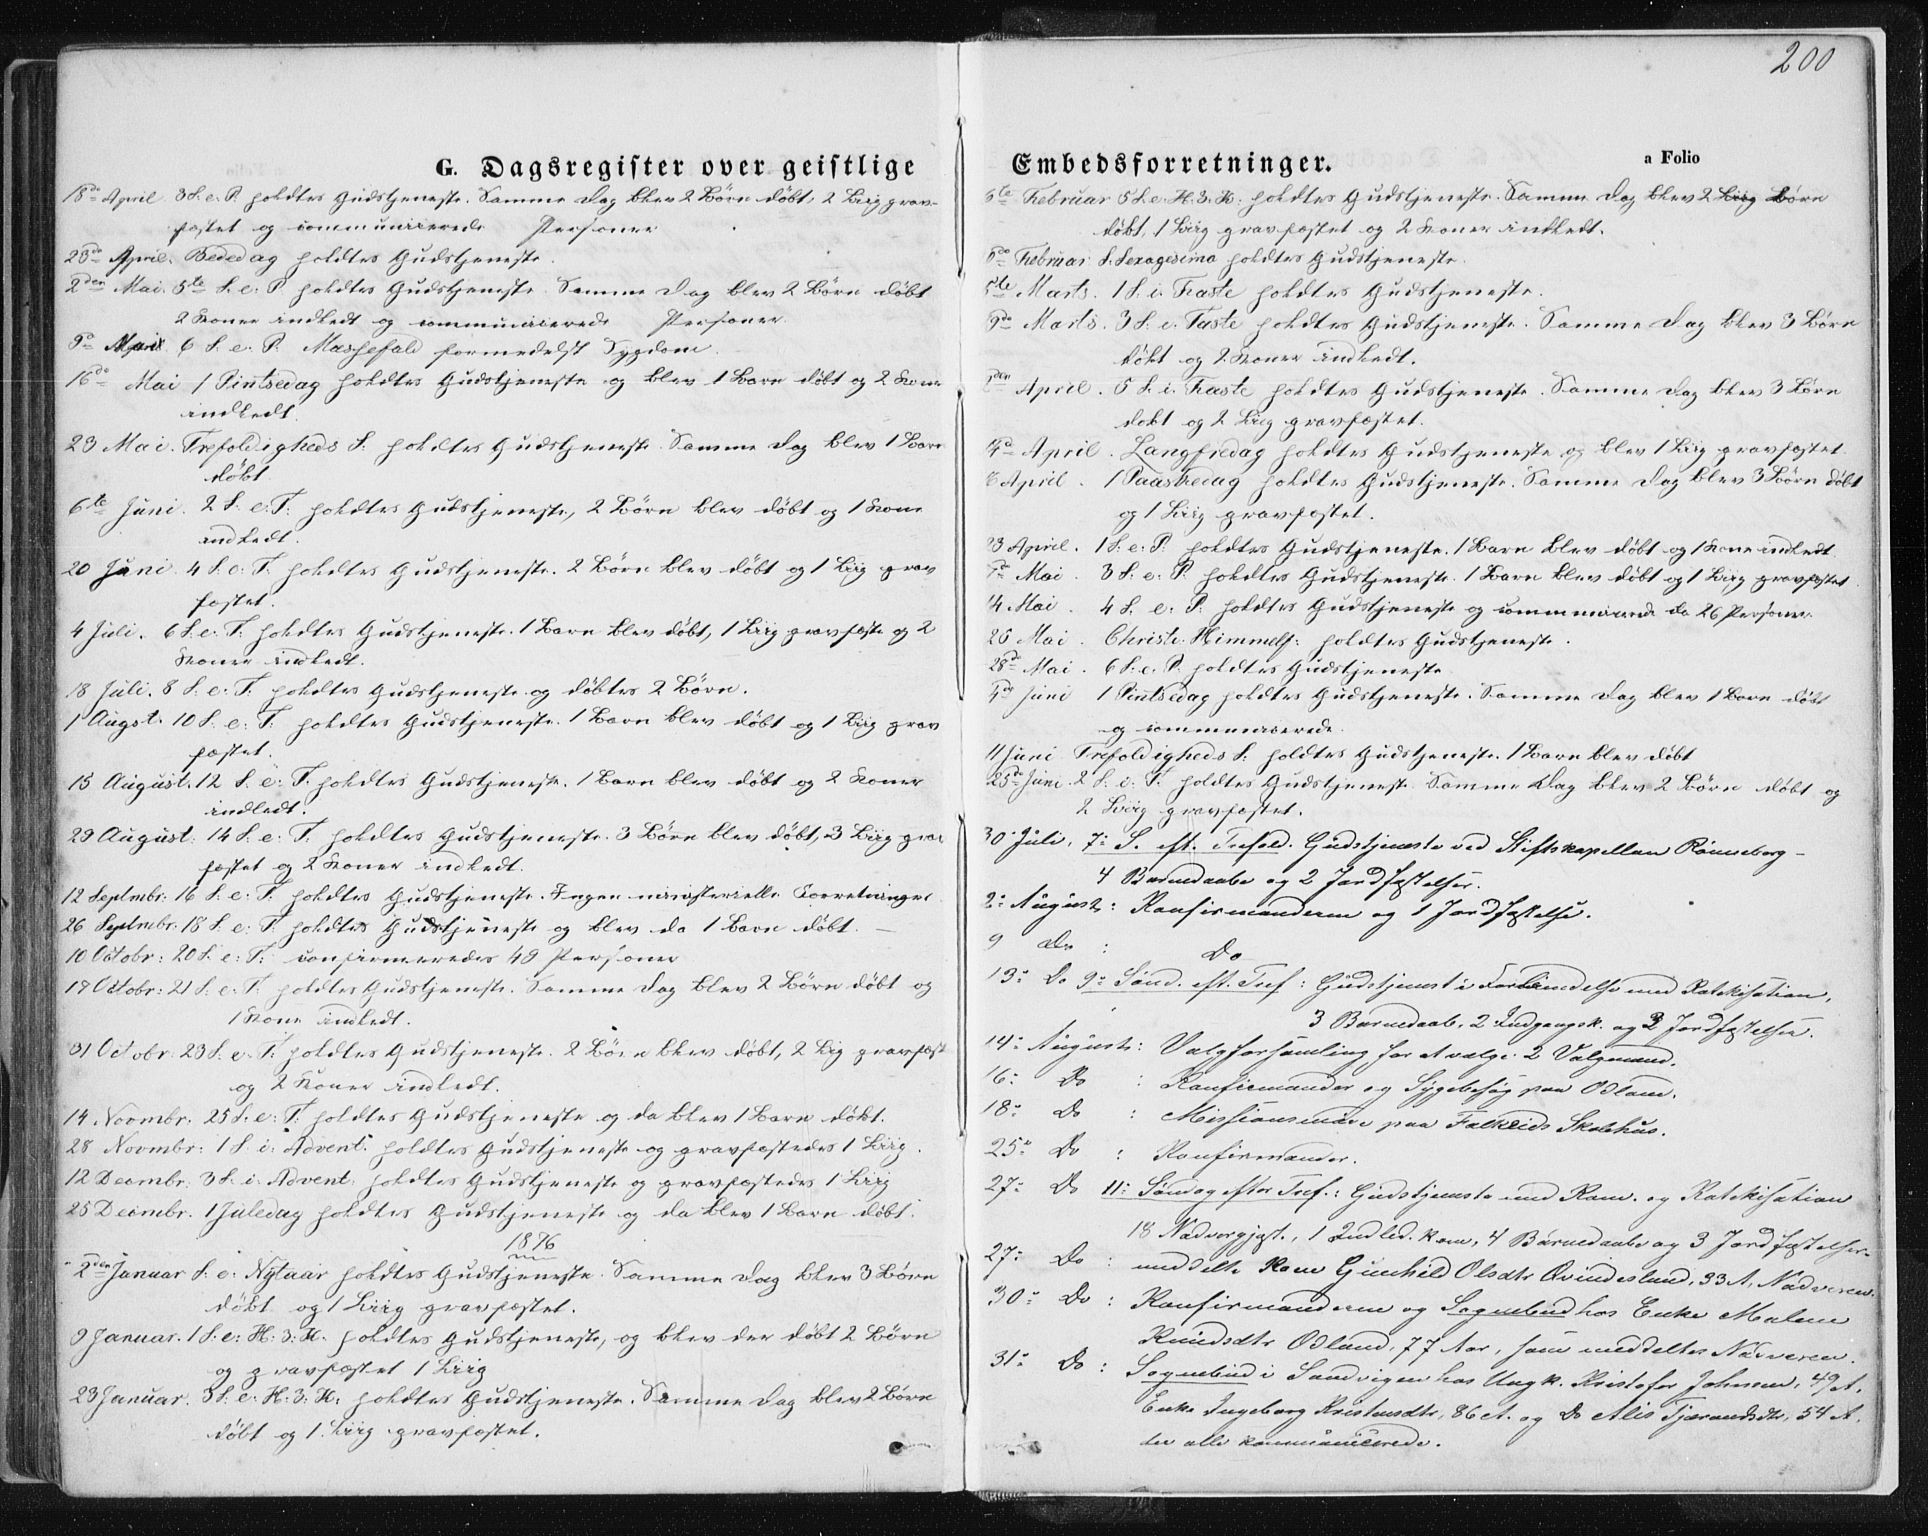 G. Dagsregister over geistlige
18de April 3 S. e. P. holdtes Gudstjeneste. Samme Dag blev 2 Børn døbt, 2 Liig grav-
fæstet og communicerede Personer
23de April. Bededag holdtes Gudstjeneste.
2den Mai. 5te S. e. P. holdtes Gudstjeneste. Samme Dag blev 2 Børn døbt
2 Koner indledt og communicerede Personer.
9de Mai 6 S. e. P. Messefald formedelst Sygdom.
16de Mai 1 Pintsedag holdtes Gudstjeneste og blev 1 Barn døbt og 2 Koner
indledt.
23 Mai. Trefoldigheds S. holdtes Gudstjeneste. Samme Dag blev 1 Barn
døbt.
6te Juni. 2 S. e. T. holdtes Gudstjeneste, 2 Børn blev døbt og 1 Kone
indledt.
20 Juni 4 S. e. T. holdtes Gudstjeneste. 2 Børn blev døbt og 1 Liig grav
fæstet.
4 Juli. 6 S. e. T. holdtes Gudstjeneste. 1 Barn blev døbt, 1 Liig gravfæste og 2
Koner indledt.
18 Juli. 8 S. e. T. holdtes Gudstjeneste og døbtes 2 Børn.
1 Augst. 10 S. e. T. holdtes Gudstjeneste. 1 Barn blev døbt og 1 Liig grav
fæstet.
15 August. 12 S. e. T. holdtes Gudstjeneste. 1 Barn blev døbt og 2 Koner
indledt.
29 August: 14 S. e. T. holdtes Gudstjeneste. 3 Børn blev døbt, 3 Liig grav
fæstet og 2 Koner indledt.
12 Septmbr: 16 S. e. T. holdtes Gudstjeneste. Ingen ministerielle Forretninger.
26 Septmbr. 18 S. e. T. holdtes Gudstjeneste og blev da 1 Barn døbt. —
10 Octobr: 20 S. e. T. confirmeredes 49 Personer
17 Octobr: 21 S. e. T. holdtes Gudstjeneste. Samme Dag blev 2 Børn døbt og
1 Kone indledt.
31 Octobr: 23 S. e. T. holdtes Gudstjeneste. 2 Børn blev døbt, 2 Lig gravfæst
og 2 Koner indledt.
14 Novmbr. 25 S. e. T. holdtes Gudstjeneste og da blev 1 Barn døbt.
28 Novmbr: 1 S. i. Advent holdtes Gudstjeneste og gravfæstedes 1 Liig.
12 Decmbr: 3 S. i. Advent holdtes Gudstjeneste og gravfæstedes 1 Liig
25 Decmbr. 1 Juledag holdtes Gudstjeneste og da blev 1 Barn døbt.
1876
2den Januar S. e. Nytaar holdtes Gudstjeneste. Samme Dag blev 3 Børn
døbt og 1 Liig gravfæstet.
9 Januar. 1 S. e. H. 3. K. holdtes Gudstjeneste, og blev der døbt 2 Børn
og gravfæstet 1 Liig
23 Januar. 3 S. e. H. 3. K. holdtes Gudstjeneste. Samme Dag blev 2 Børn
døbt og 1 Liig gravfæstet.
200
Embedsforretninger.
a Folio
6te Februar 5 S. e. H. 3. K. holdtes Gudstjeneste. Samme Dag blev 2 Børn
døbt, 1 Liig gravfæstet og 2 Koner indledt.
Februar S. Sexagesima holdtes Gudstjeneste.
5te Marts. 1 S. i. Faste holdtes Gudstjeneste.
Marts. 3 S. i. Faste holdtes Gudstjeneste. Samme Dag blev 3 Børn
døbt og 2 Koner indledt.
April. 5 S. i. Faste holdtes Gudstjeneste. Samme Dag blev 3 Børn
døbt og 2 Liig gravfæstet.
April. Langfredag holdtes Gudstjeneste og blev 1 Liig gravfæstet.
April. 1 Paaskedag holdtes Gudstjeneste. Samme Dag blev 3 Børn døbt
og 1 Liig gravfæstet.
23 April. 1 S. e. P. holdtes Gudstjeneste. 1 Barn blev døbt og 1 Kone indledt.
7de Mai. 3 S. e. P. holdtes Gudstjeneste. 1 Barn blev døbt og 1 Liig gravfæstet
14 Mai. 4 S. e. P. holdtes Gudstjeneste og communicerede da 26 Personer.
25 Mai. Christi Himmelf: holdtes Gudstjeneste.
28de Mai. 6 S. e. P. holdtes Gudstjeneste
4de Juni 1 Pintsedag holdtes Gudstjeneste. Samme Dag blev 1 Barn døbt
og communicerede.
11 Juni Trefoldigheds S. holdtes Gudstjeneste. 1 Barn blev døbt
25de Juni 2 S. e. T. holdtes Gudstjeneste. Samme Dag blev 2 Børn døbt og
2 Liig gravfæstet.
30 Juli, 7: S. eft. Trefold. Gudstjeneste ved Stiftskapellan Rønneberg —
4 Barnedaabe og 2 Jordfæstelser.
2: August: Konfirmanderne og 1 Jordfæstelse.
9 Do : Do
13: Do 9: Sønd. eft. Tref: Gudstjenest i Forbindelse med Katekisation,
3 Barnedaab, 2 Indgangsk. og 3 Jordfæstelser.
14: August: Valgforsamling for at vælge 2 Valgmænd.
16: Do : Konfirmander og Sygebesøg paa Odland.
18: Do : Missionsmøde paa Falkeids Skolehus.
25: Do : Konfirmander.
27: Do 11: Søndag efter Tref.: Gudstjeneste med Kom. og Katekisation
18 Nadvergjæst., 1 Indled. Kone, 4 Barnedaabe og 3 Jordfæstelser.
27: Do : meddelte Kone Gunhild Olsdtr Qvindesland, 33 A, Nadveren.
30: Do : Konfirmanderne og Sognebud hos Enke Malene
Knudsdtr Odland, 77 Aar, som meddeltes Nadveren.
31: Do : Sognebud i Sandvigen hos Ungk. Kristofer Johnsen, 49 A.
Enke Ingeborg Kristensdtr, 86 A. og Do Alis Tjerandsdtr, 54 A.
der alle kommunicerede.